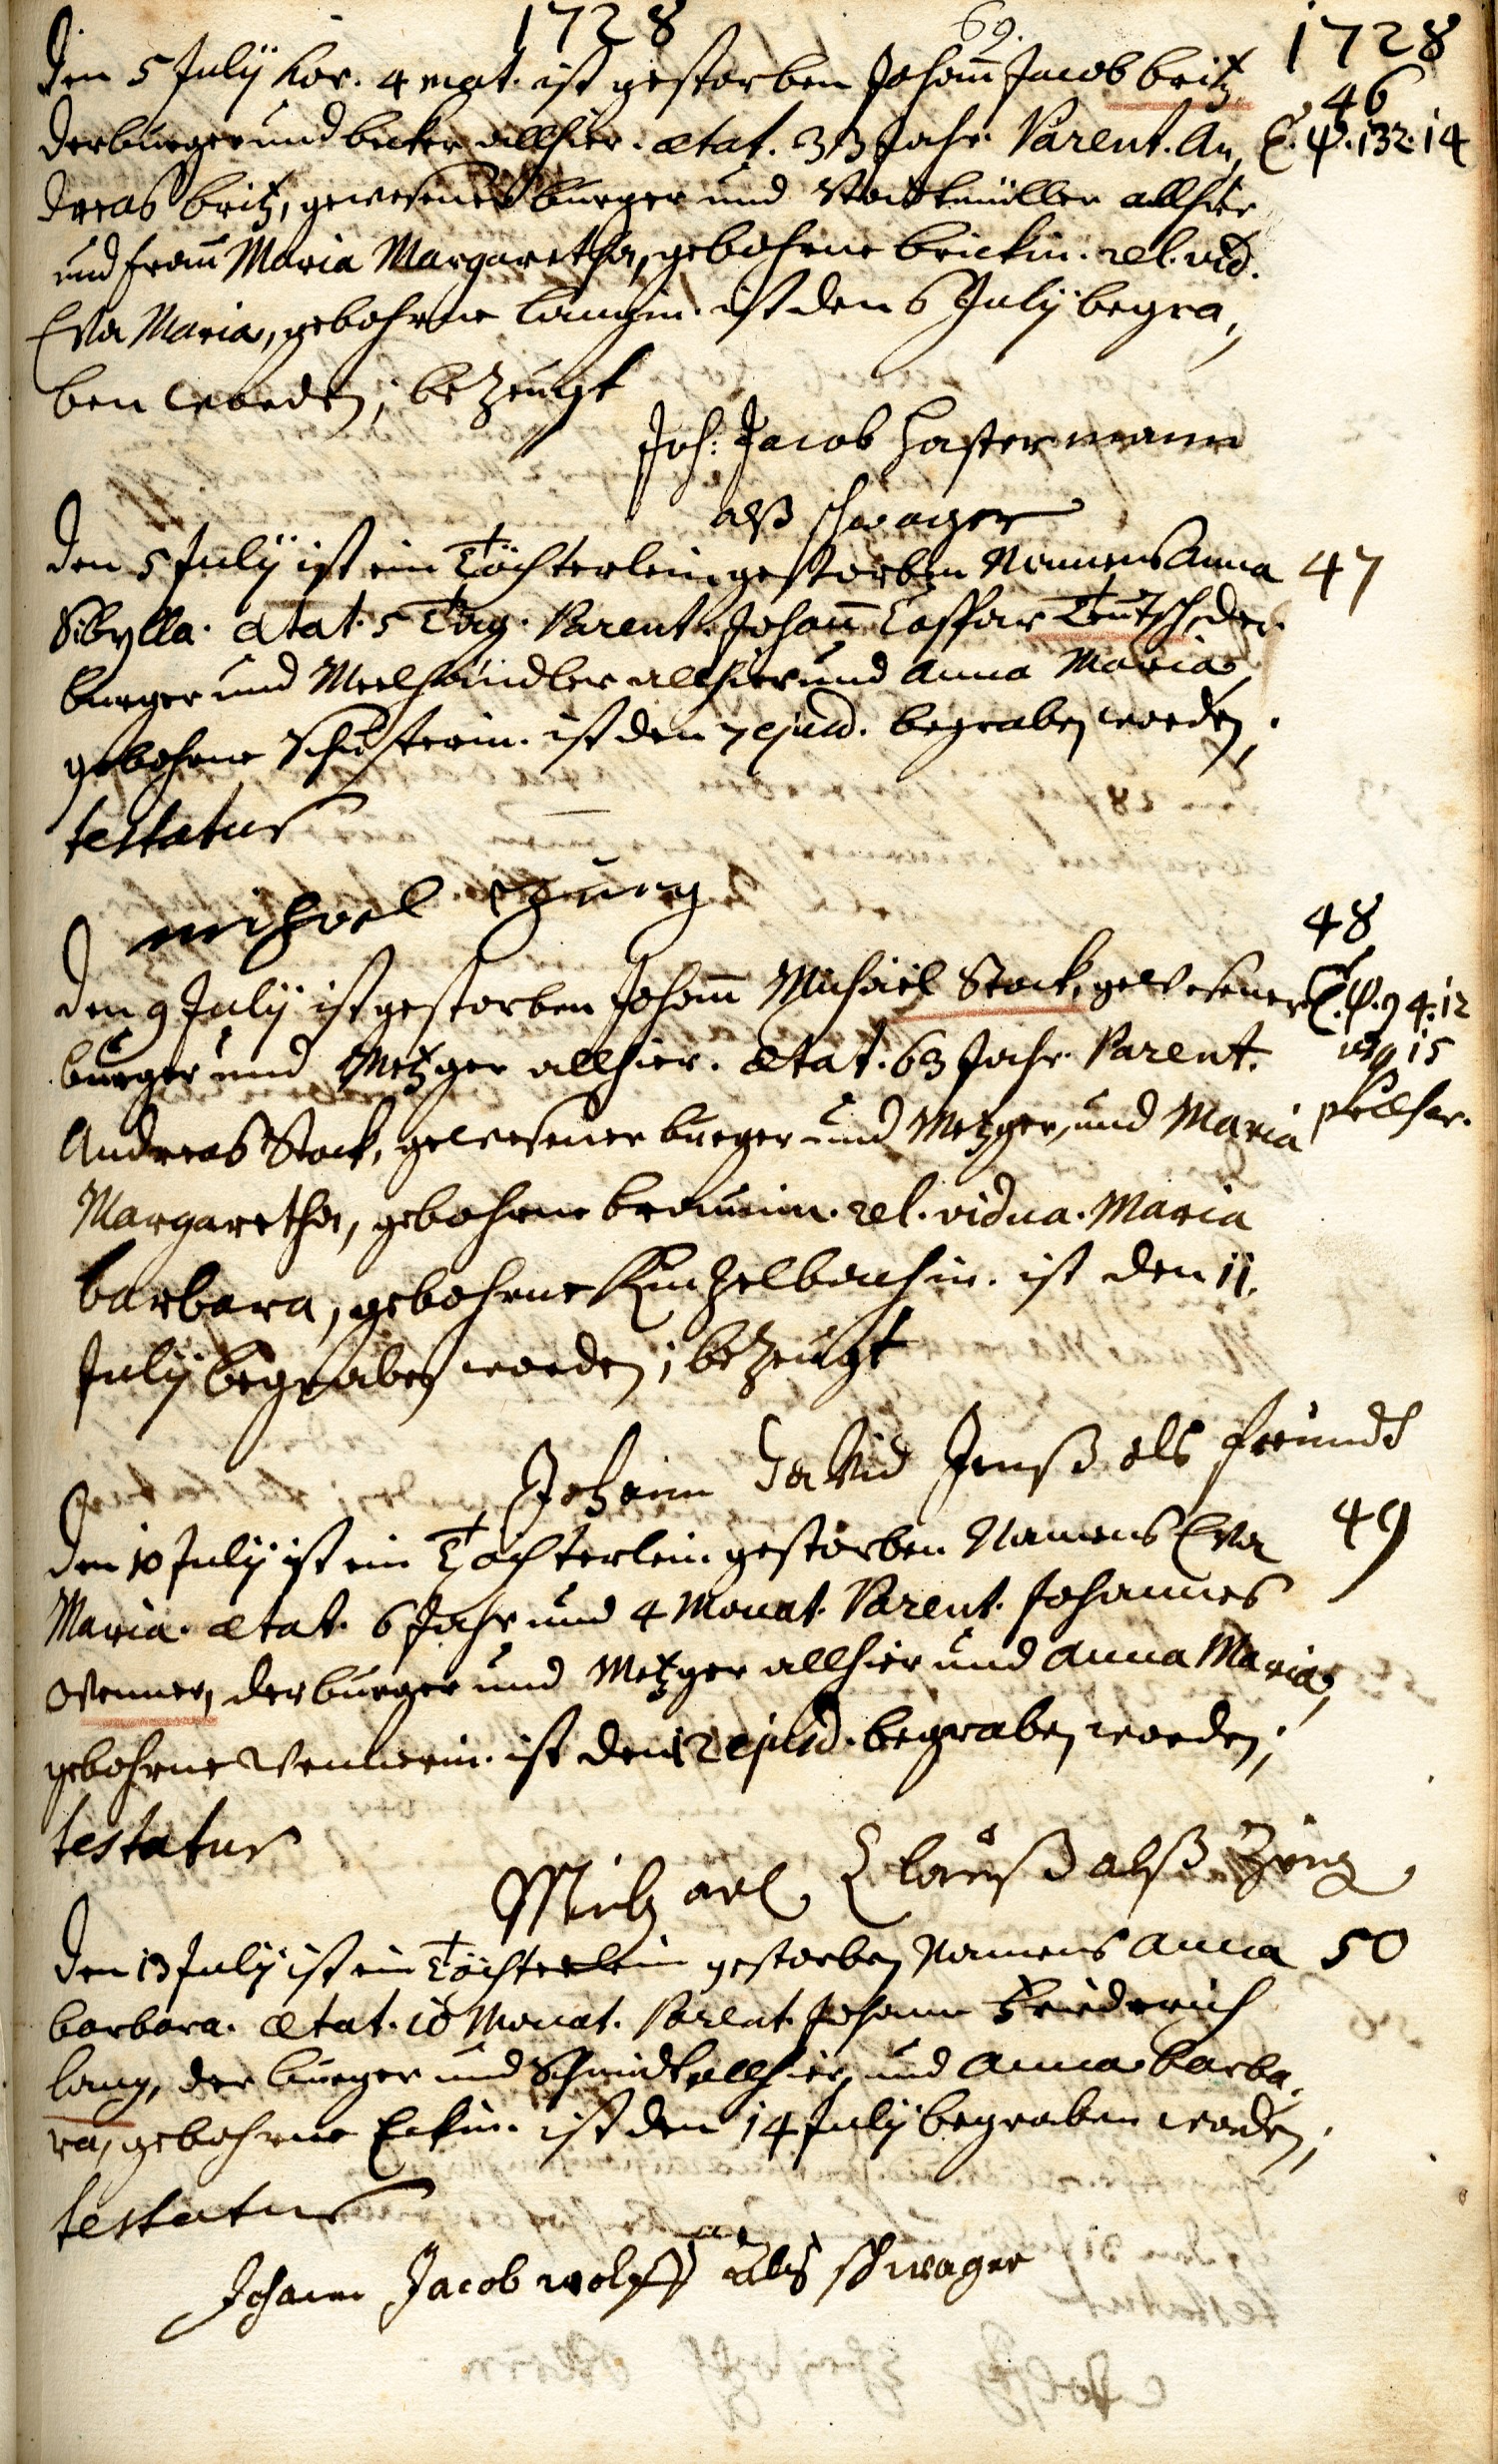 1728 69. 1728
Den 5 Julij hor. 4 mat. ist gestorben Johann Jacob britz, 46
der burger und becker allhier. ætat. 33 Jahr. Parent. An, E. ψ. 132. 14
dreas britz, gewesener burger und allhier
und Frau Maria Margaretha, gebohrne brickin. rel. vid.
Eva Maria, gebohrne Langin. ist den 6 Julij begra,
ben worden; bezeugt
Joh: Jacob Hastermann
alß schwager
Den 5 Julij ist ein Töchterlein gestorben Namens Anna 47
Sibylla. ætat. 5 Tag. Parent. Johann Caspar Teutsch, der
burger und Meelhändler allhier und Anna Maria,
gebohrne Schusterin. ist den 7 ejusd. begraben worden;
testatur
michael
48
Den 9 Julij ist gestorben Johann Michäel Stock, gewesener E. ψ. 94. 12
burger und Metzger allhier. ætat. 63 Jahr. Parent. 15
Andreas Stock, gewesener burger und Metzger, und Maria
Margaretha, gebohrne braunin. rel. vidua. Maria
barbara, gebohrne Kintzelbachin. ist den 11.
Julij begraben worden; bezeugt
Johann David als freundt
Den 10 Julij ist ein Töchterlein gestorben Namens Eva 49
Maria. ætat. 6 Jahr und 4 Monat. Parent. Johannes
Wenner, der burger und Metzger allhier und Anna Maria,
gebohrne Wennerin. ist den 12 ejusd. begraben worden;
testatur
Michael Clauß alß
Den 13 Julij ist ein Töchterlein gestorben Namens Anna 50
barbara. ætat. 10 Monat. Parent. Johann Friederich
Lang, der burger und Schmidt allhier, und Anna barba,
ra, gebohrne Eckin. ist den 14 Julij begraben worden;
testatur
Johann Jacob wolff als schwager